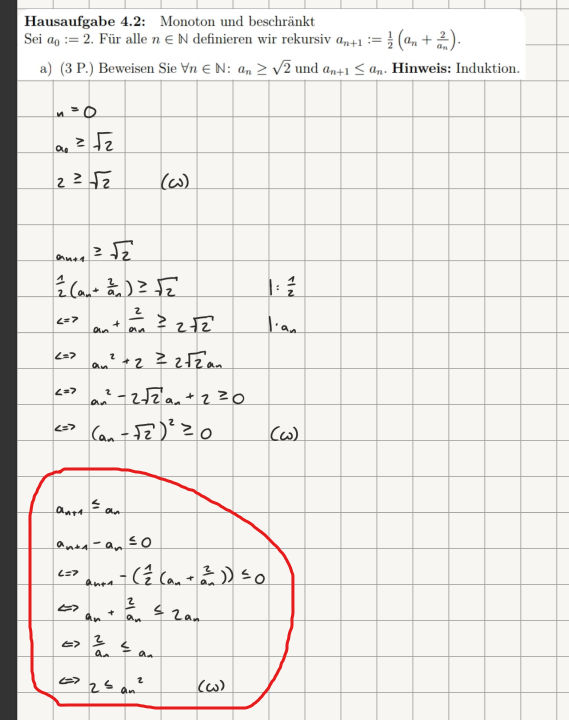 Hausaufgabe 4.2: Monoton und beschränkt
Sei a₀ := 2. Für alle n ∈ ℕ definieren wir rekursiv aₙ₊₁ := ½ (aₙ + 2/aₙ).
a) (3 P.) Beweisen Sie ∀n ∈ ℕ: aₙ ≥ √2 und aₙ₊₁ ≤ aₙ. Hinweis: Induktion.
n = 0
a₀ ≥ √2
2 ≥ √2 (ω)
aₙ₊₁ ≥ √2
½ (aₙ + 2/aₙ) ≥ √2 | : ½
<=> aₙ + 2/aₙ ≥ 2√2 | · aₙ
<=> aₙ² + 2 ≥ 2√2 aₙ
<=> aₙ² - 2√2 aₙ + 2 ≥ 0
<=> (aₙ - √2)² ≥ 0 (ω)
aₙ₊₁ ≤ aₙ
aₙ₊₁ - aₙ ≤ 0
<=> aₙ₊₁ - (½ (aₙ + 2/aₙ)) ≤ 0
<=> aₙ + 2/aₙ ≤ 2aₙ
<=> 2/aₙ ≤ aₙ
<=> 2 ≤ aₙ² (ω)